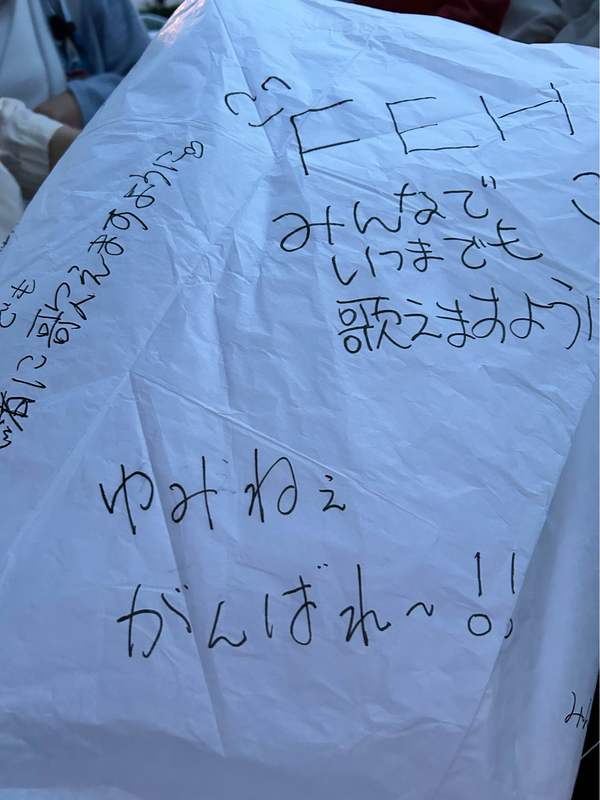 FEH
みんなで
いつまでも
歌えますように
に歌えますように
ゆみねぇ
がんばれ〜!!